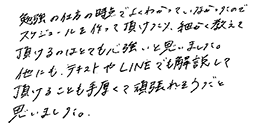 勉強の仕方の時点でよくわかっていなかったので
スケジュールを作って頂けたり、細かく教えて
頂けるのはとても心強いと思いました。
他にも、テキストやLINEでも解説して
頂けることも手厚くて頑張れそうだと
思いました。